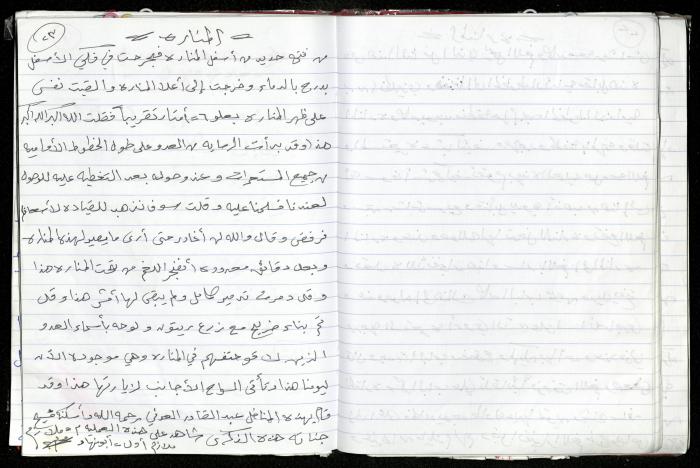 ٢٣
المناره
من فتحه حديد من أسفل المناره فجرحت في فكي الأسفل
بدرج بالدماء وخرجت إلى أعلا المناره وألقيت نفسي
على ظهر المناره بعلو ٦ أمتار تقريباً فقلت الله اكبر الله اكبر
هذا وقد بدأت الرمايه من العدو على طول الخطوط الأماميه
من جميع المستعمرات وعند وصوله بعد التغطيه عليه للوصول
لعندنا سلمنا عليه وقلت سوف نذهب للقياده لأسعافك
فرفض وقال والله لن أغادر حتى أرى ما يصير لهذه المناره
وبعد دقائق معدوده أنفجر اللغم من تحت المناره هذا
وقد دمرت تدمير كامل ولم يبقى لها أثر هذا وقد
تم بناء ضريح مع زرع زيتون ولوحه بأسماء العدو
الذين لاقو حتفهم في المناره وهي موجوده الأن
ليومنا هذا وتأتي السواح الأجانب لزيارتها هذا وقد
قام بهذه المناضل عبد القادر العوفي رحمه الله وأسكنه فسيح
جناته هذه الذكرى شاهد على هذه العمليه
ملازم أول